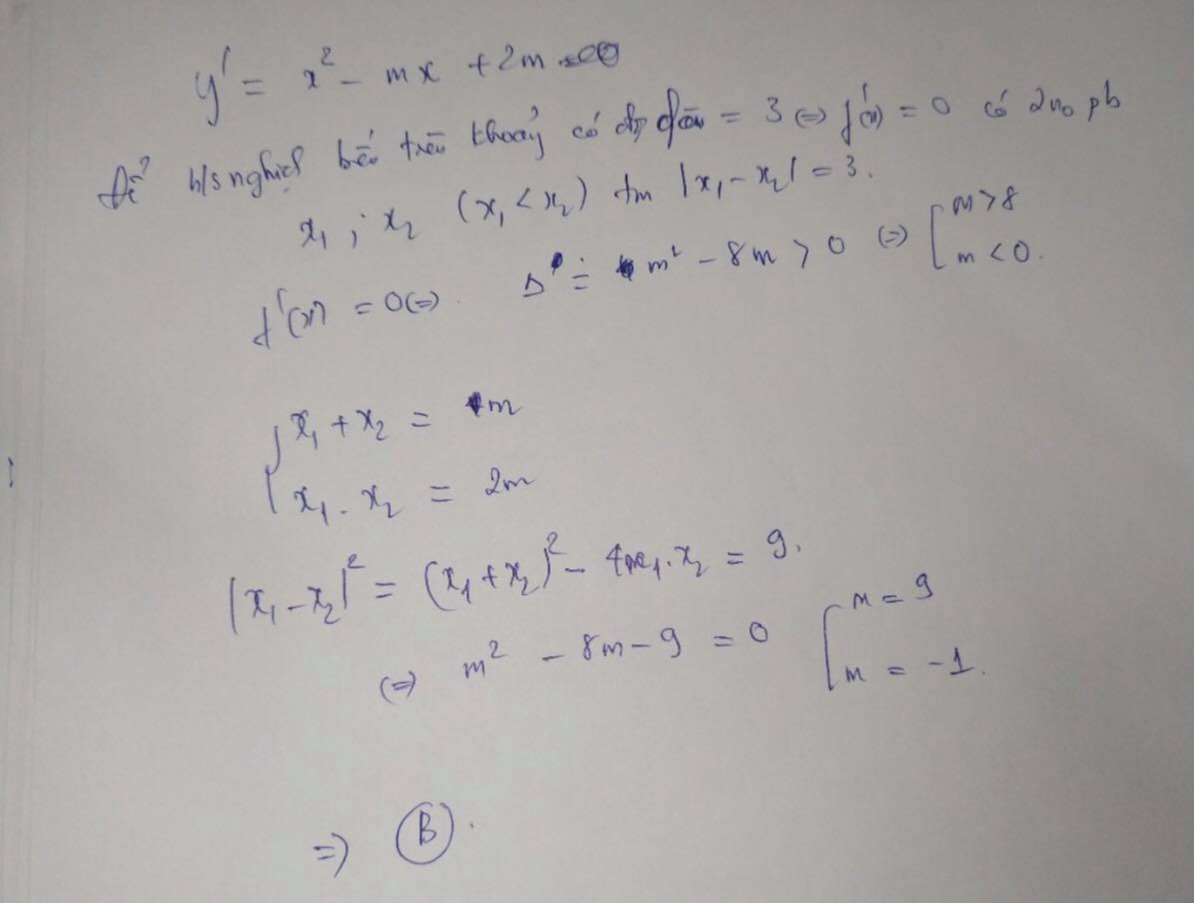 y' = x² - mx + 2m
Để h/s nghịch biến trên khoảng có độ dài = 3 ⇔ f'(x) = 0 có 2 no pb
x₁ ; x₂ (x₁ < x₂) tm |x₁ - x₂| = 3.
f'(x) = 0 ⇔ Δ = m² - 8m > 0 ⇔ [ m > 8
m < 0.
{ x₁ + x₂ = m
x₁ . x₂ = 2m
|x₁ - x₂|² = (x₁ + x₂)² - 4x₁.x₂ = 9.
⇔ m² - 8m - 9 = 0 [ m = 9
m = -1.
⇒ B.